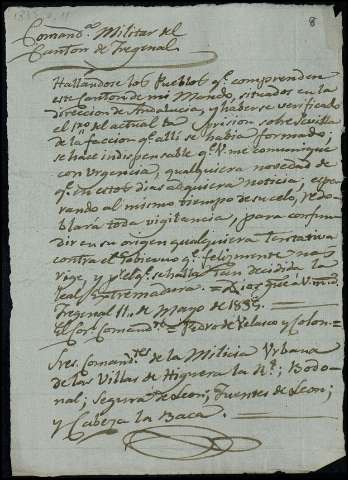 8
Comand.ª Militar del
Canton de Fregenal
Hallandose los Pueblos q.e comprenden
este Canton de mi Mando, situados en la
direccion de Andalucia, y haberse verificado
el 1.º del actual la prision sobre Sevilla
de la faccion q.e alli se habia formado;
se hace indispensable q.e V. me comunique
con urgencia, qualquiera novedad de
q.e en estos dias adquiera noticia, espe-
rando al mismo tiempo de su celo, redo-
blará toda vigilancia, para confun-
dir en su origen qualquiera tentativa
contra el Gobierno q.e felizmente nos
rige, y p.r el q.e se halla tan decidida la
leal Extremadura. = Dios gue a V. m.s a.s
Fregenal 11 de Mayo de 1835. =
El Cor.l Comand.te Pedro de Velasco y Colon =
Sres. Comand.tes de la Milicia Urbana
de las Villas de Higuera la R.l; Bodo-
nal; Segura de Leon; Fuentes de Leon;
y Cabeza la Baca. =